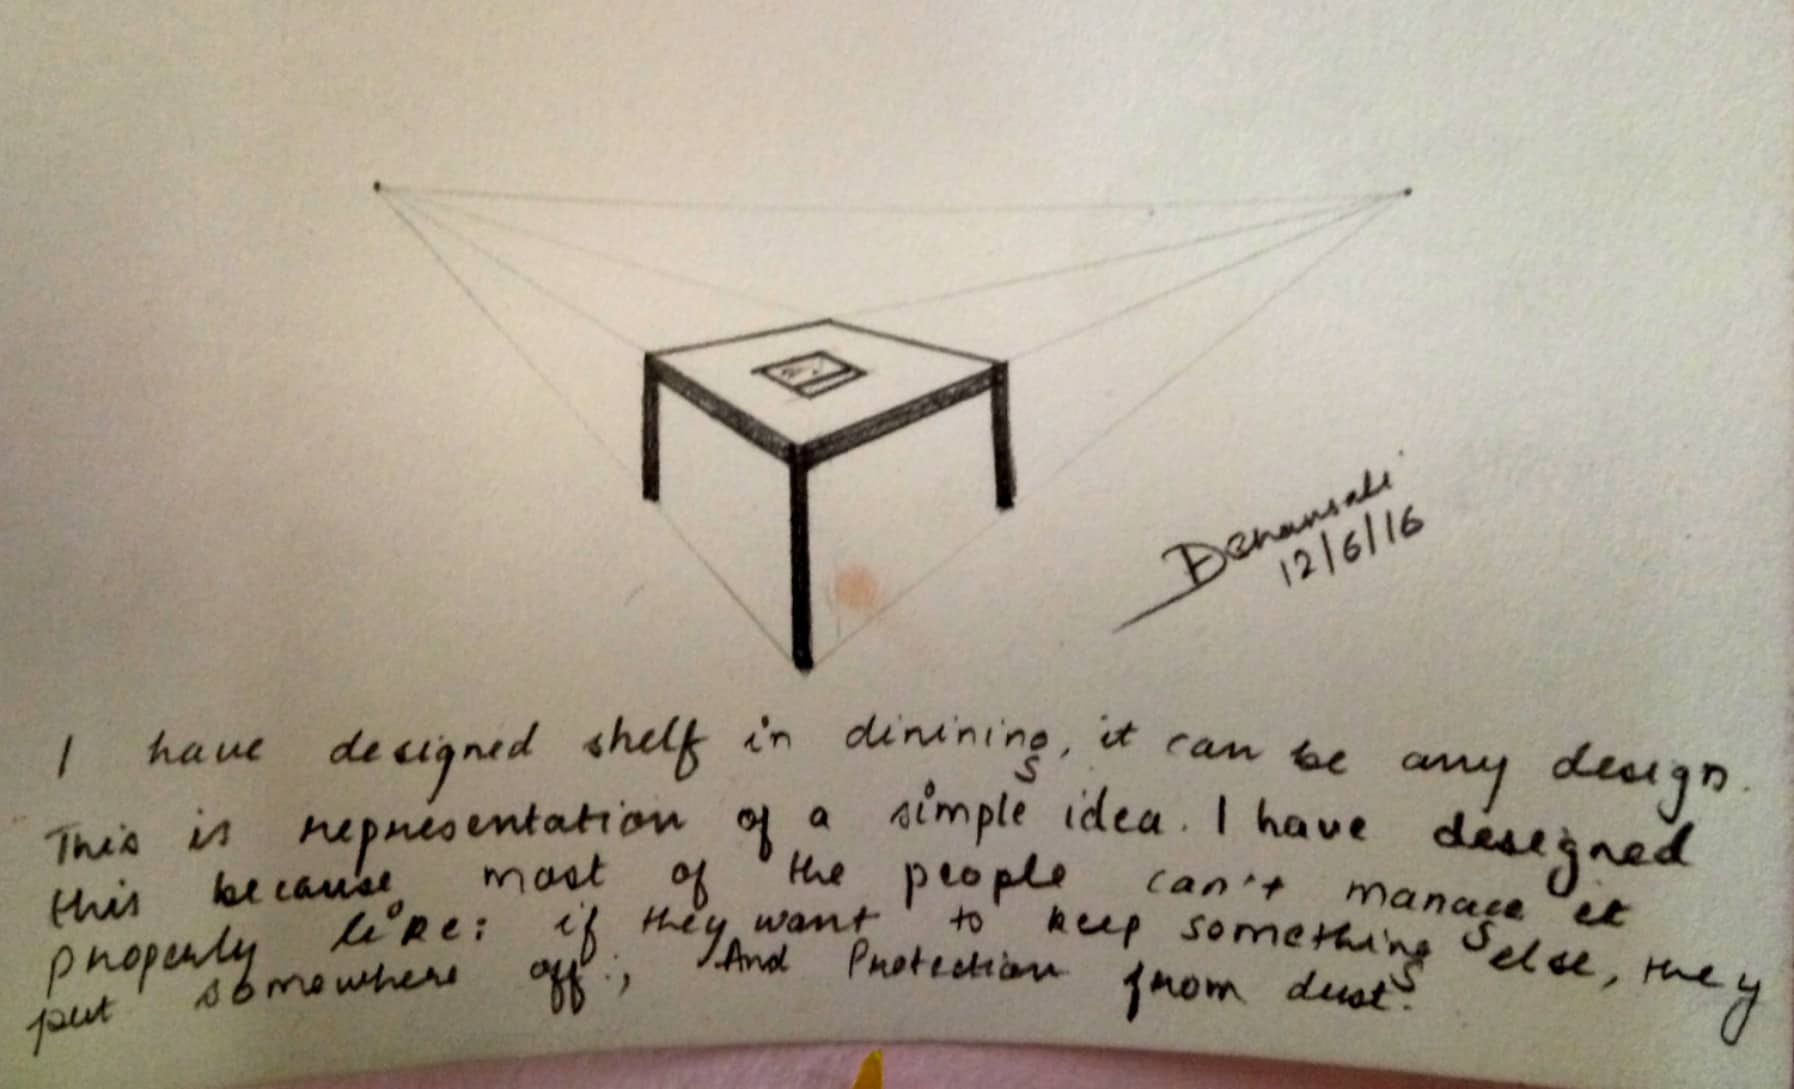 12/6/16
I have designed shelf in dinining, it can be any design.
This is representation of a simple idea. I have designed
this because most of the people can't manage it
properly like: if they want to keep something else, they
put somewhere off:, And Protection from dust.